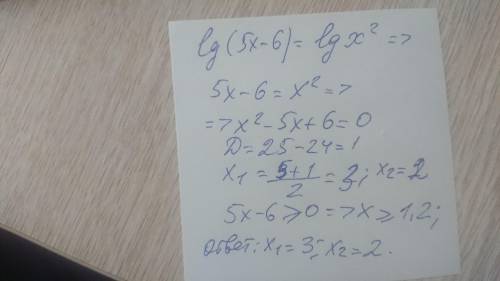 lg(5x-6)=lgx² =>
5x-6=x² =>
=>x²-5x+6=0
D=25-24=1
x₁=(5+1)/2=3; x₂=2
5x-6≥0=>x≥1,2;
ответ: x₁=3; x₂=2.